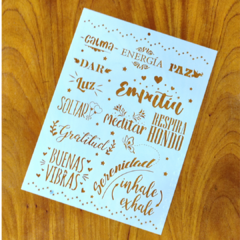 Calma
ENERGÍA
PAZ
DAR
Luz
Empatía
SOLTAR
meditar
RESPIRA
HONDO
Gratitud
BUENAS
VIBRAS
Serenidad
inhale
exhale